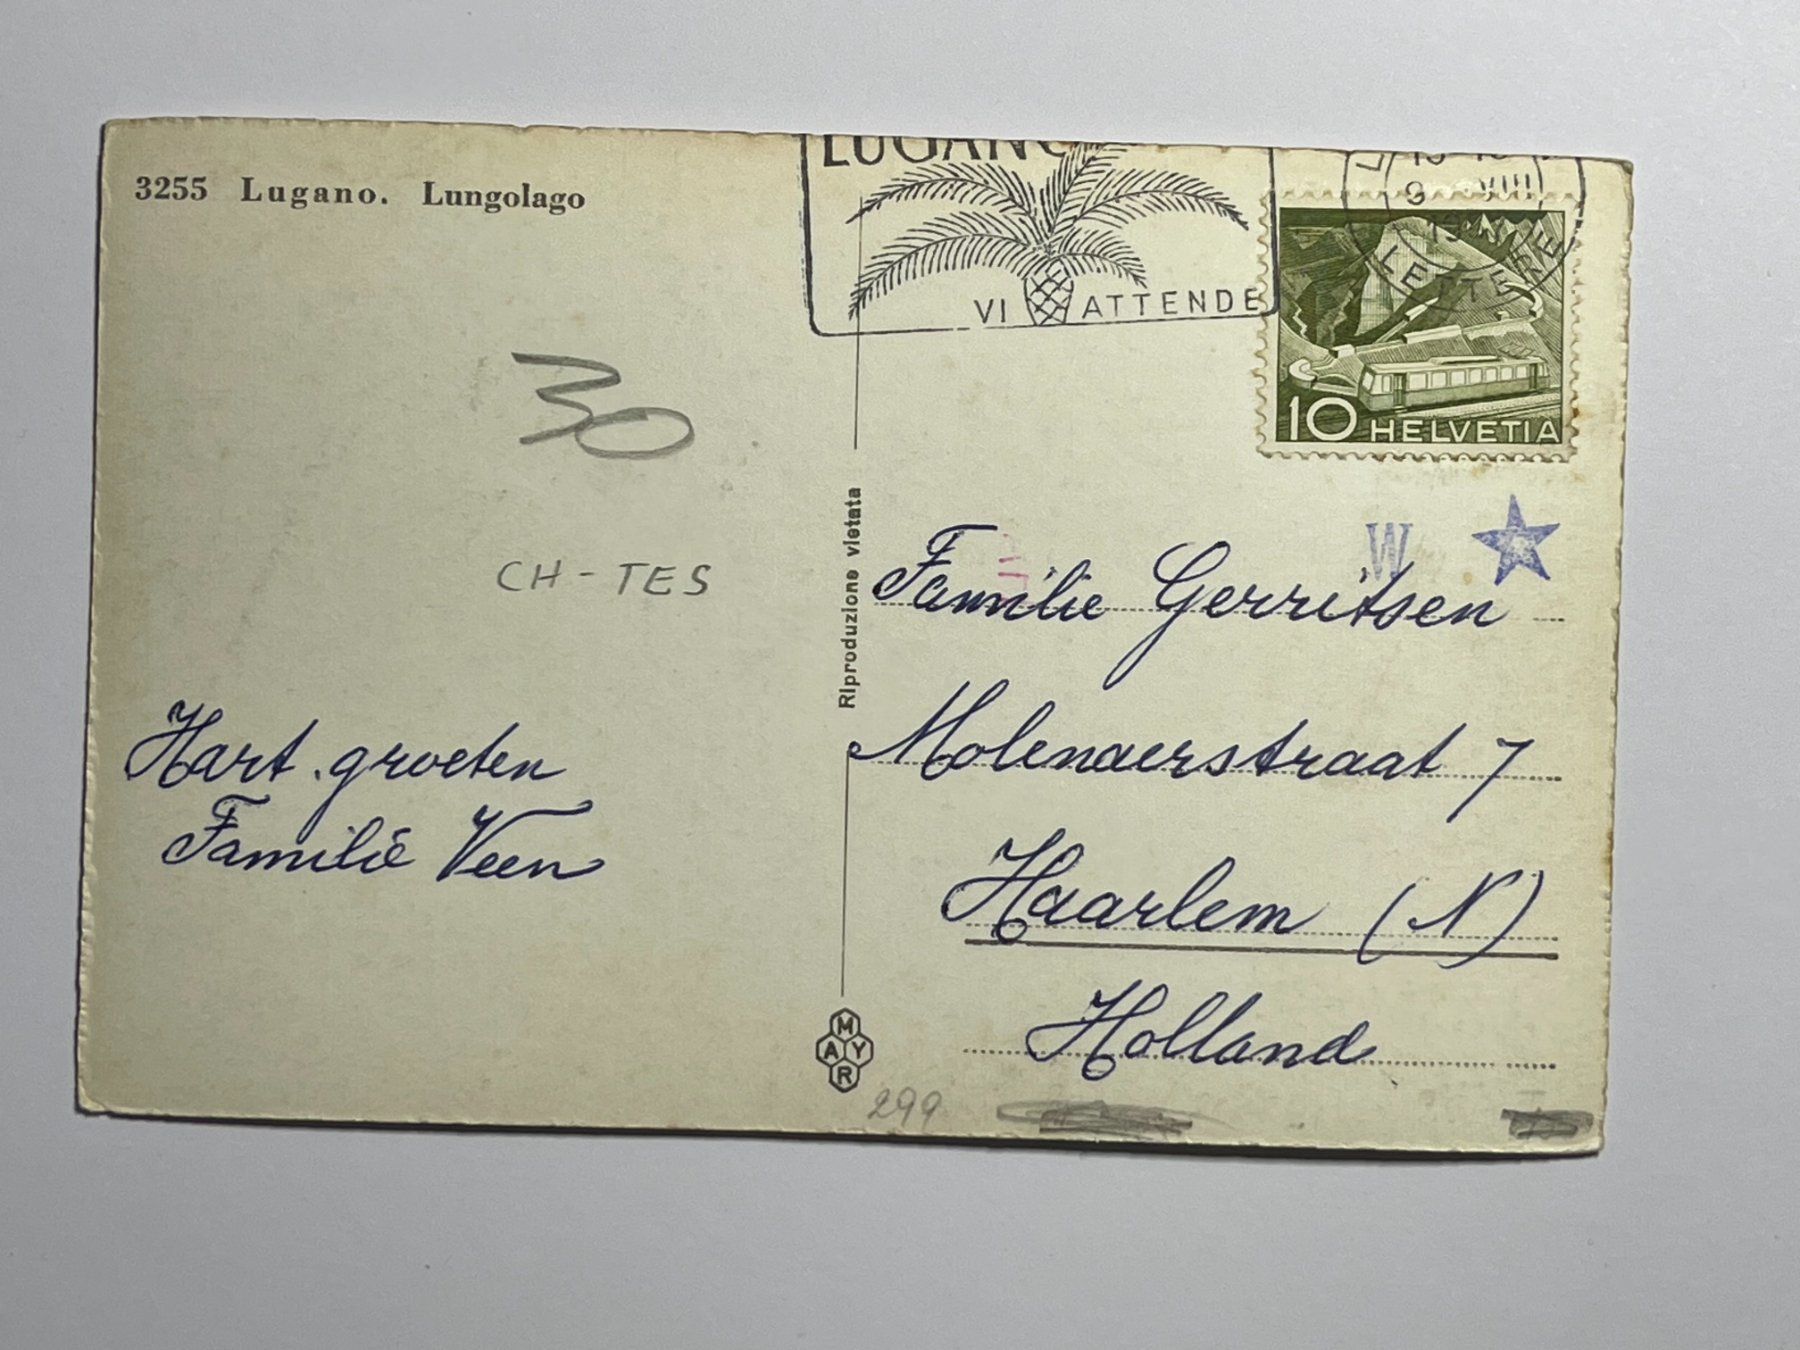 3255 Lugano. Lungolago
LUGANO
VI ATTENDE
VIII
LETTERE
10 HELVETIA
30
CH-TES
Riproduzione vietata
W
Familie Gerritsen
Molenaerstraat 7
Haarlem (N)
Holland
Hart. groeten
Familie Veen
MAYR
299